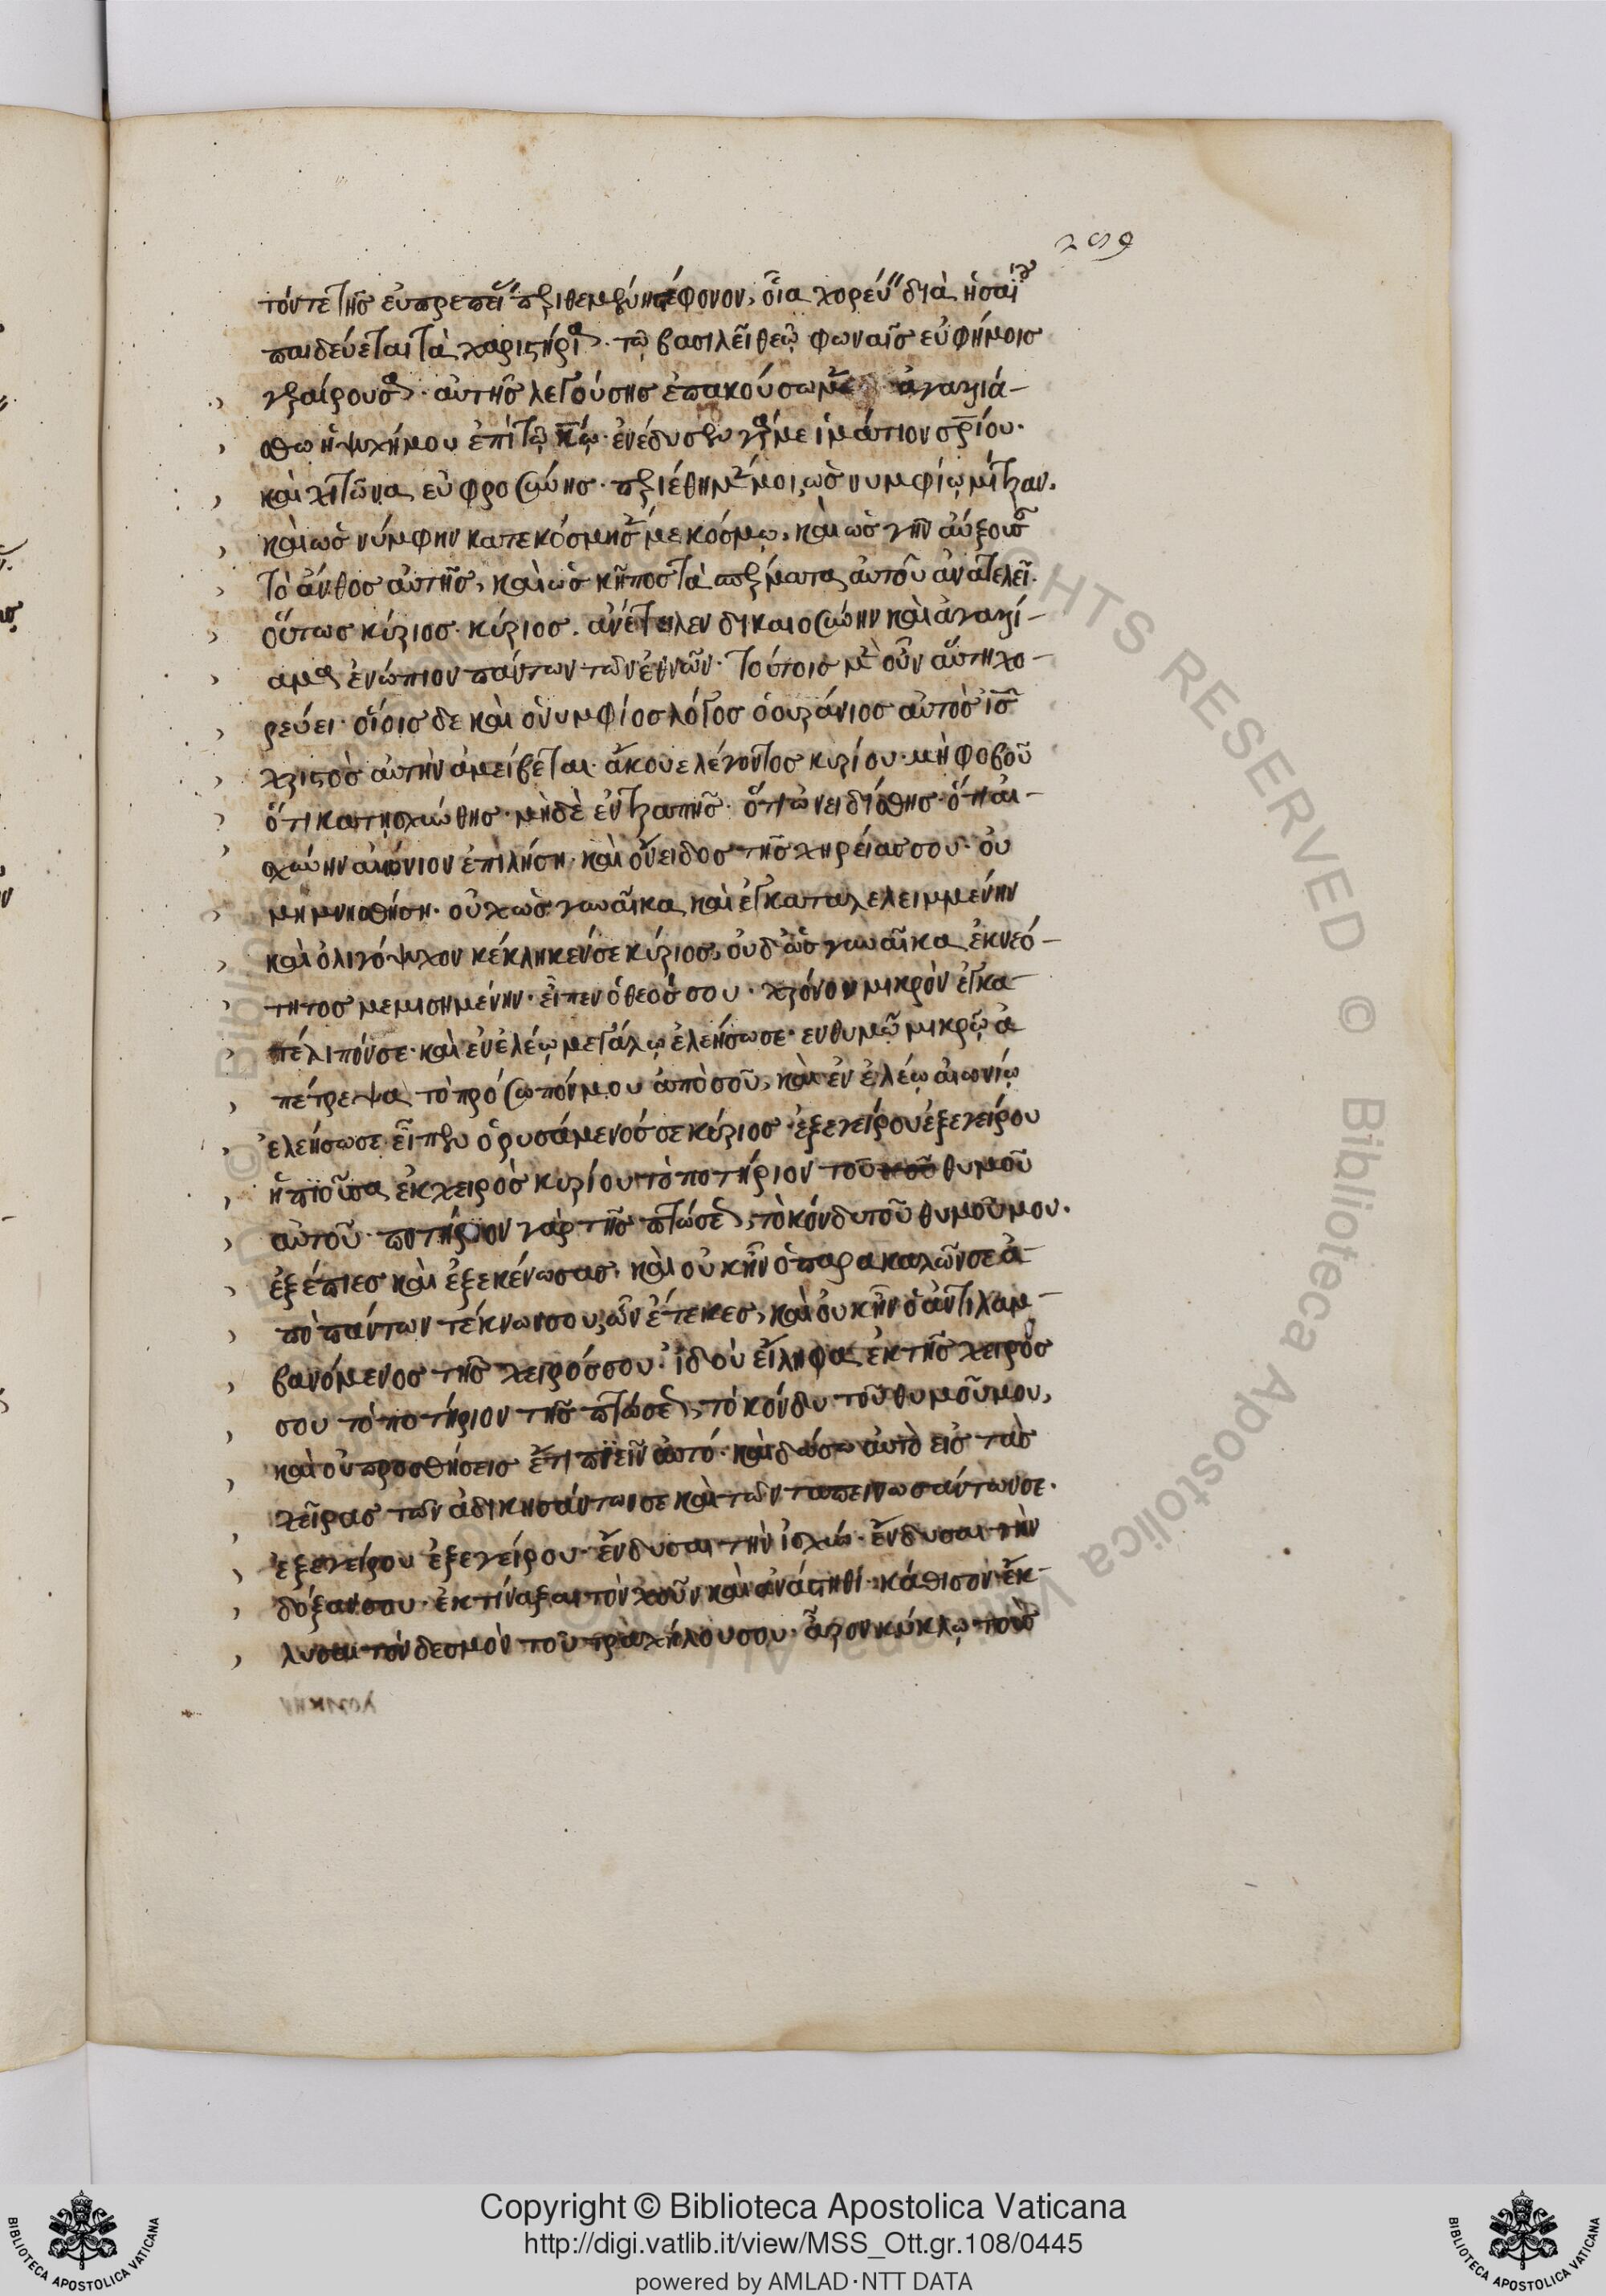 259
τόν τε τῆς εὐπρεπείας περιθεμένη στέφανον, οἷα χορεύειν διὰ ἡσαΐου
παιδεύεται τὰ χαριστήρια τῷ βασιλεῖ θεῷ φωναῖς εὐφήμοις
γεραίρουσα· αὐτῆς λεγούσης ἐπακούσωμεν ἀγαλλιά-
σθω ἡ ψυχή μου ἐπὶ τῷ κῷ· ἐνέδυσεν γάρ με ἱμάτιον σρίου·
καὶ χιτῶνα εὐφροσύνης· περιέθηκέν μοι, ὡς νυμφίῳ μίτραν.
καὶ ὡς νύμφην κατεκόσμησέν με κόσμῳ, καὶ ὡς γῆν αὔξουσαν
τὸ ἄνθος αὐτῆς, καὶ ὡς κῆπος τὰ σπέρματα αὐτοῦ ἀνατελεῖ.
οὕτως κύριος κύριος. ἀνέτειλεν δικαιοσύνην καὶ ἀγαλλί-
αμα ἐνώπιον πάντων τῶν ἐθνῶν· τούτοις μὲν οὖν αὕτη χο-
ρεύει· οἵοις δε καὶ ὁ νυμφίος λόγος ὁ οὐράνιος αὐτὸς ἰς
χριστὸς αὐτὴν ἀμείβεται ἄκουε λέγοντος κυρίου· μὴ φοβοῦ
ὅτι κατῃσχύνθης· μηδὲ ἐντραπῇς· ὅτι ὠνειδίσθης· ὅτι αἰ-
σχύνην αἰώνιον ἐπιλήσῃ· καὶ ὄνειδος τῆς χηρείας σου· οὐ
μὴ μνησθήσῃ· οὐχ ὡς γυναῖκα καὶ ἐγκαταλελειμμένην
καὶ ὀλιγόψυχον κέκληκέν σε κύριος, οὐδ' ὡς γυναῖκα ἐκ νεό-
τητος μεμισημένην· εἶπεν ὁ θεός σου· χρόνον μικρὸν ἐγκα-
τέλιπόν σε· καὶ ἐν ἐλέῳ μεγάλῳ ἐλεήσω σε· εν θυμῷ μικρῷ ἀ
πέτρεψα τὸ πρόσωπόν μου ἀπὸ σοῦ, καὶ ἐν ἐλέῳ αἰωνίῳ
ἐλεήσω σε εἶπεν ὁ ῥυσάμενός σε κύριος· ἐξεγείρου ἐξεγείρου
ἡ πιοῦσα ἐκ χειρὸς κυρίου τὸ ποτήριον τοῦ θυμοῦ
αὐτοῦ· ποτήριον γὰρ τῆς πτώσεως, τὸ κόνδυ τοῦ θυμοῦ μου.
ἐξέπιες καὶ ἐξεκένωσας, καὶ οὐκ ἦν ὁ παρακαλῶν σε ἀ-
πὸ πάντων τέκνων σου, ὧν ἔτεκες, καὶ οὐκ ἦν ὁ ἀντιλαμ-
βανόμενος τῆς χειρός σου· ἰδοὺ εἴληφα ἐκ τῆς χειρός
σου τὸ ποτήριον τῆς πτώσεως, τὸ κόνδυ τοῦ θυμοῦ μου,
καὶ οὐ προσθήσεις ἔτι πιεῖν αὐτό· καὶ δώσω αὐτὸ εἰς τὰς
χεῖρας τῶν ἀδικησάντων σε καὶ τῶν ταπεινωσάντων σε·
ἐξεγείρου ἐξεγείρου· ἔνδυσαι τὴν ἰσχύν· ἔνδυσαι τὴν
δόξαν σου· ἐκτίναξαι τὸν χοῦν καὶ ἀνάστηθι· κάθισον· ἔκ-
λυσαι τὸν δεσμὸν τοῦ τραχήλου σου· ἆρον κύκλῳ τοὺς
Copyright © Biblioteca Apostolica Vaticana
http://digi.vatlib.it/view/MSS_Ott.gr.108/0445
powered by AMLAD·NTT DATA